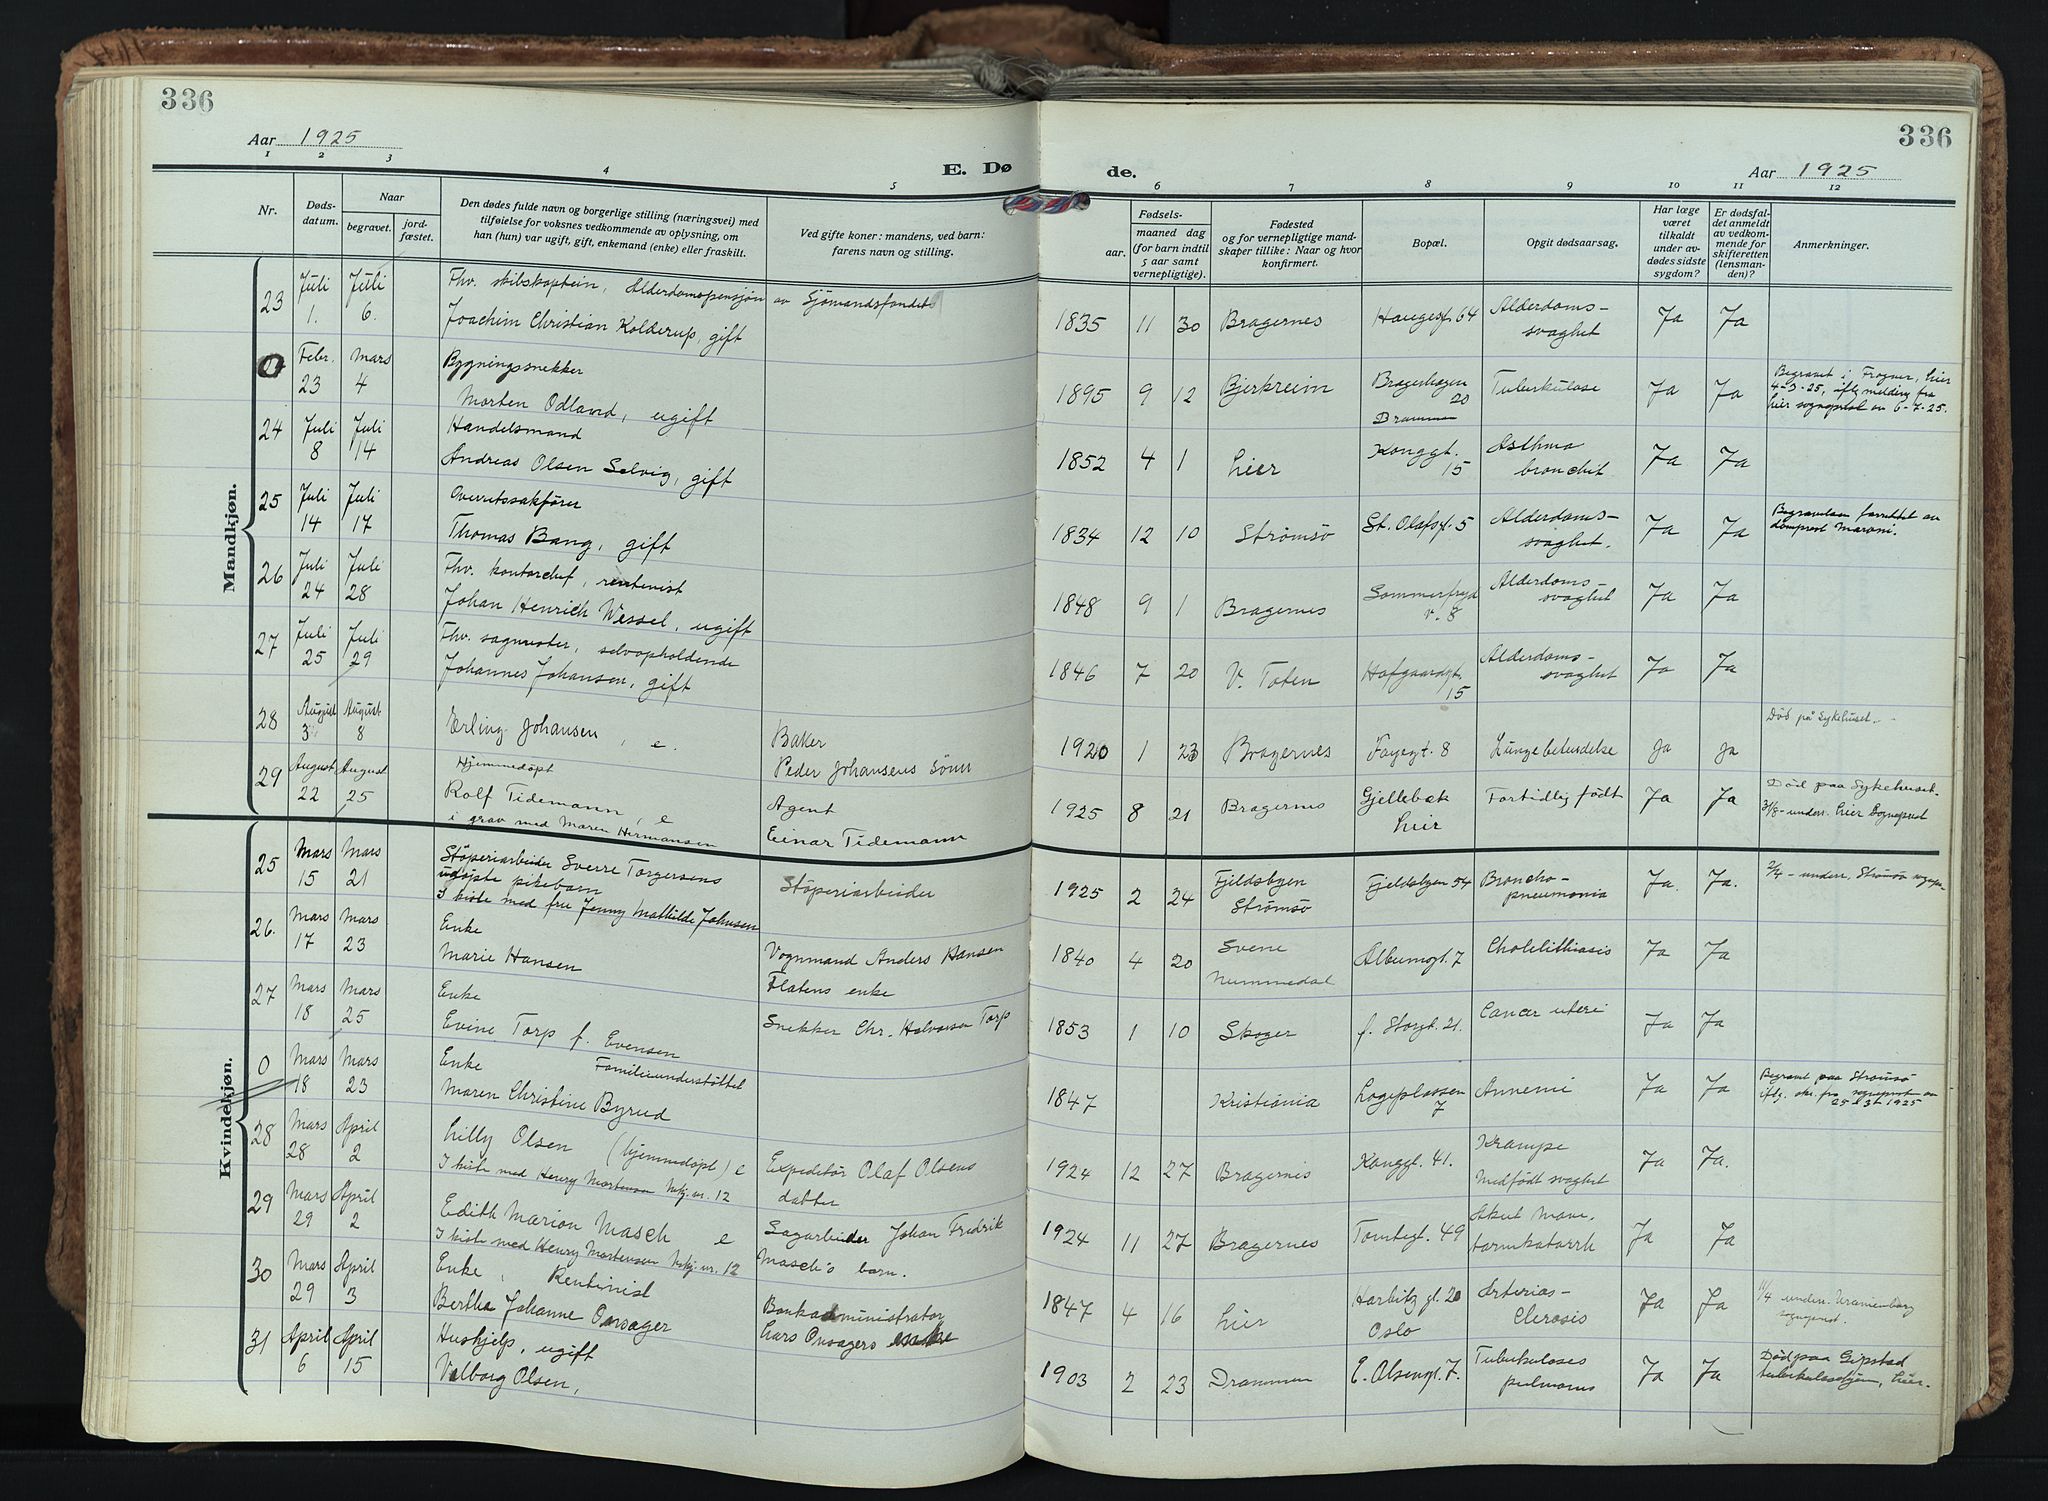 336
336
Aar 1925
E. Dø
de.
Aar 1925
1 2 3 4 5 6 7 8 9 10 11 12
Nr.
Døds-
datum.
Naar
begravet.
jord-
fæstet.
Den dødes fulde navn og borgerlige stilling (næringsvei) med
tilføielse for voksnes vedkommende av oplysning, om
han (hun) var ugift, gift, enkemand (enke) eller fraskilt.
Ved gifte koner: mandens, ved barn:
farens navn og stilling.
Fødsels-
aar. maaned dag
(for barn indtil
5 aar samt
vernepligtige).
Fødested
og for vernepligtige mand-
skaper tillike: Naar og hvor
konfirmert.
Bopæl.
Opgit dødsaarsag.
Har læge
været
tilkaldt
under av-
dødes sidste
sygdom?
Er dødsfal-
det anmeldt
av vedkom-
mende for
skifteretten
(lensman-
den)?
Anmerkninger.
Mandkjøn.
23 Juli Juli Fhv. skibskaptein, Alderdomspensjon av Sjømandsfondet
1. 6. Joachim Christian Kolderup, gift 1835 11 30 Bragernes Haugesgt. 64 Alderdoms-
svaghet Ja Ja
0 Febr. Mars Bygningssnekker
23 4 Morten Odland, ugift 1895 9 12 Bjerkreim Bragerhagen
20
Drammen Tuberkulose Ja Ja Begravet i Frogner, Lier
4-3-25, iflg melding fra
Lier sogneprest av 6-7-25.
24 Juli Juli Handelsmand
8 14 Andreas Olsen Selvig, gift 1852 4 1 Lier Konggt.
15 Asthma
bronchit Ja Ja
25 Juli Juli Overretssakfører
14 17 Thomas Bang, gift 1834 12 10 Strømsø St. Olafsgt. 5 Alderdoms-
svaghet. Ja Ja Begravelsen forrettet av
domprost Maroni.
26 Juli Juli Fhv. kontorchef, rentenist
24 28 Johan Henrich Wessel, ugift 1848 9 1 Bragernes Sommerfryd
v. 8 Alderdoms-
svaghet Ja Ja
27 Juli Juli Fhv. sagmester, selvopholdende
25 29 Johannes Johansen, gift 1846 7 20 V. Toten Hofgaardgt.
15 Alderdoms-
svaghet Ja Ja
28 August August Erling Johansen, e. Baker
3 8 Peder Johansens sønn 1920 1 23 Bragernes Fayegt. 8 Lungebetendelse Ja Ja Död på Sykehuset.
29 August August Hjemmedöpt
22 25 Rolf Tidemann, e
i grav med Maren Hermansen Agent
Einar Tidemann 1925 8 21 Bragernes Gjellebæk
Lier Fortidlig født Ja Ja Död paa Sykehuset.
31/8 - underr. Lier Sogneprest
Kvindekjøn.
25 Mars Mars Støperiarbeider Sverre Torgersens
15 21 udøpte pikebarn
I kiste med fru Jenny Mathilde Johnsen Støperiarbeider 1925 2 24 Fjeldsbyen
Strømsø Fjeldsbyen 54 Broncho-
pneumonia Ja. Ja. 2/4 - underr. Strømsø sognepr.
26. Mars Mars Enke
17 23 Marie Hansen Vognmand Anders Hansen
Flatens enke 1840 4 20 Svene
Nummedal Albumgt. 7 Cholelithiasis Ja Ja
27 Mars Mars Enke
18 25 Evine Torp f. Evensen Snekker Chr. Halvorsen Torp 1853 1 10 Skoger f. Storgt. 21. Cancer uteri Ja Ja
0 Mars Mars Enke Familieunderstøttet
18 23 Maren Christine Byrud 1847 Kristiania Logeplassen
7 Annemi Ja Ja Begravet paa Strømsø
iflg. skr. fra sogneprest av
25 3 1925
28 Mars April Lilly Olsen (hjemmedöpt) e
28 2 I kiste med Henry Mortensen Mkj. nr. 12 Expeditör Olaf Olsens
datter 1924 12 27 Bragernes Konggt. 41. Krampe
Medfödt svaghet Ja Ja.
29 Mars April Edith Marion Masch e
29 2 I kiste med Henry Mortensen Mkj. nr. 12 Sagarbeider Johan Fredrik
Masch's barn. 1924 11 27 Bragernes Tomtegt. 49 Akut Mave.
tarmkatarrh Ja Ja
30 Mars April Enke, Rentenist
29 3 Bertha Johanne Onsager Bankadministrator
Lars Onsagers enke 1847 4 16 Lier Harbitz gt. 20
Oslo Arterios-
clerosis Ja Ja 11/4 underr. Uranienborg
sogneprest.
31 April April Hushjelp, ugift
6 15 Valborg Olsen, 1903 2 23 Drammen E. Olsensgt. 7. Tuberkuloses
pulmonis Ja Ja Död paa Gipstad
tuberkulosehjem, Lier.